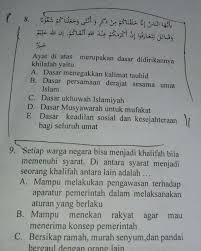 8. يَأَيُّهَا النَّاسُ إِنَّا خَلَقْنَاكُمْ مِنْ ذَكَرٍ وَ أُنْثَى وَجَعَلْنَاكُمْ شُعُوْبًا
وَقَبَائِلَ لِتَعَارَفُوْا إِنَّ أَكْرَمَكُمْ عِنْدَ اللهِ أَتْقَاكُمْ إِنَّ اللهَ عَلِيْمٌ
خَبِيْرٌ
Ayat di atas merupakan dasar didirikannya
khilafah yaitu
A. Dasar menegakkan kalimat tauhid
B. Dasar persamaan derajat sesama umat
Islam
C. Dasar ukhuwah Islamiyah
D. Dasar Musyawarah untuk mufakat
E. Dasar keadilan sosial dan kesejahteraan
bagi seluruh umat
9. Setiap warga negara bisa menjadi khalifah bila
memenuhi syarat. Di antara syarat menjadi
seorang khalifah antara lain adalah ...
A. Mampu melakukan pengawasan terhadap
aparatur pemerintah dalam melaksanakan
aturan yang berlaku
B. Mampu menekan rakyat agar mau
menerima konsep pemerintah
C. Bersikap ramah, murah senyum, dan pandai
bergaul dengan orang lain